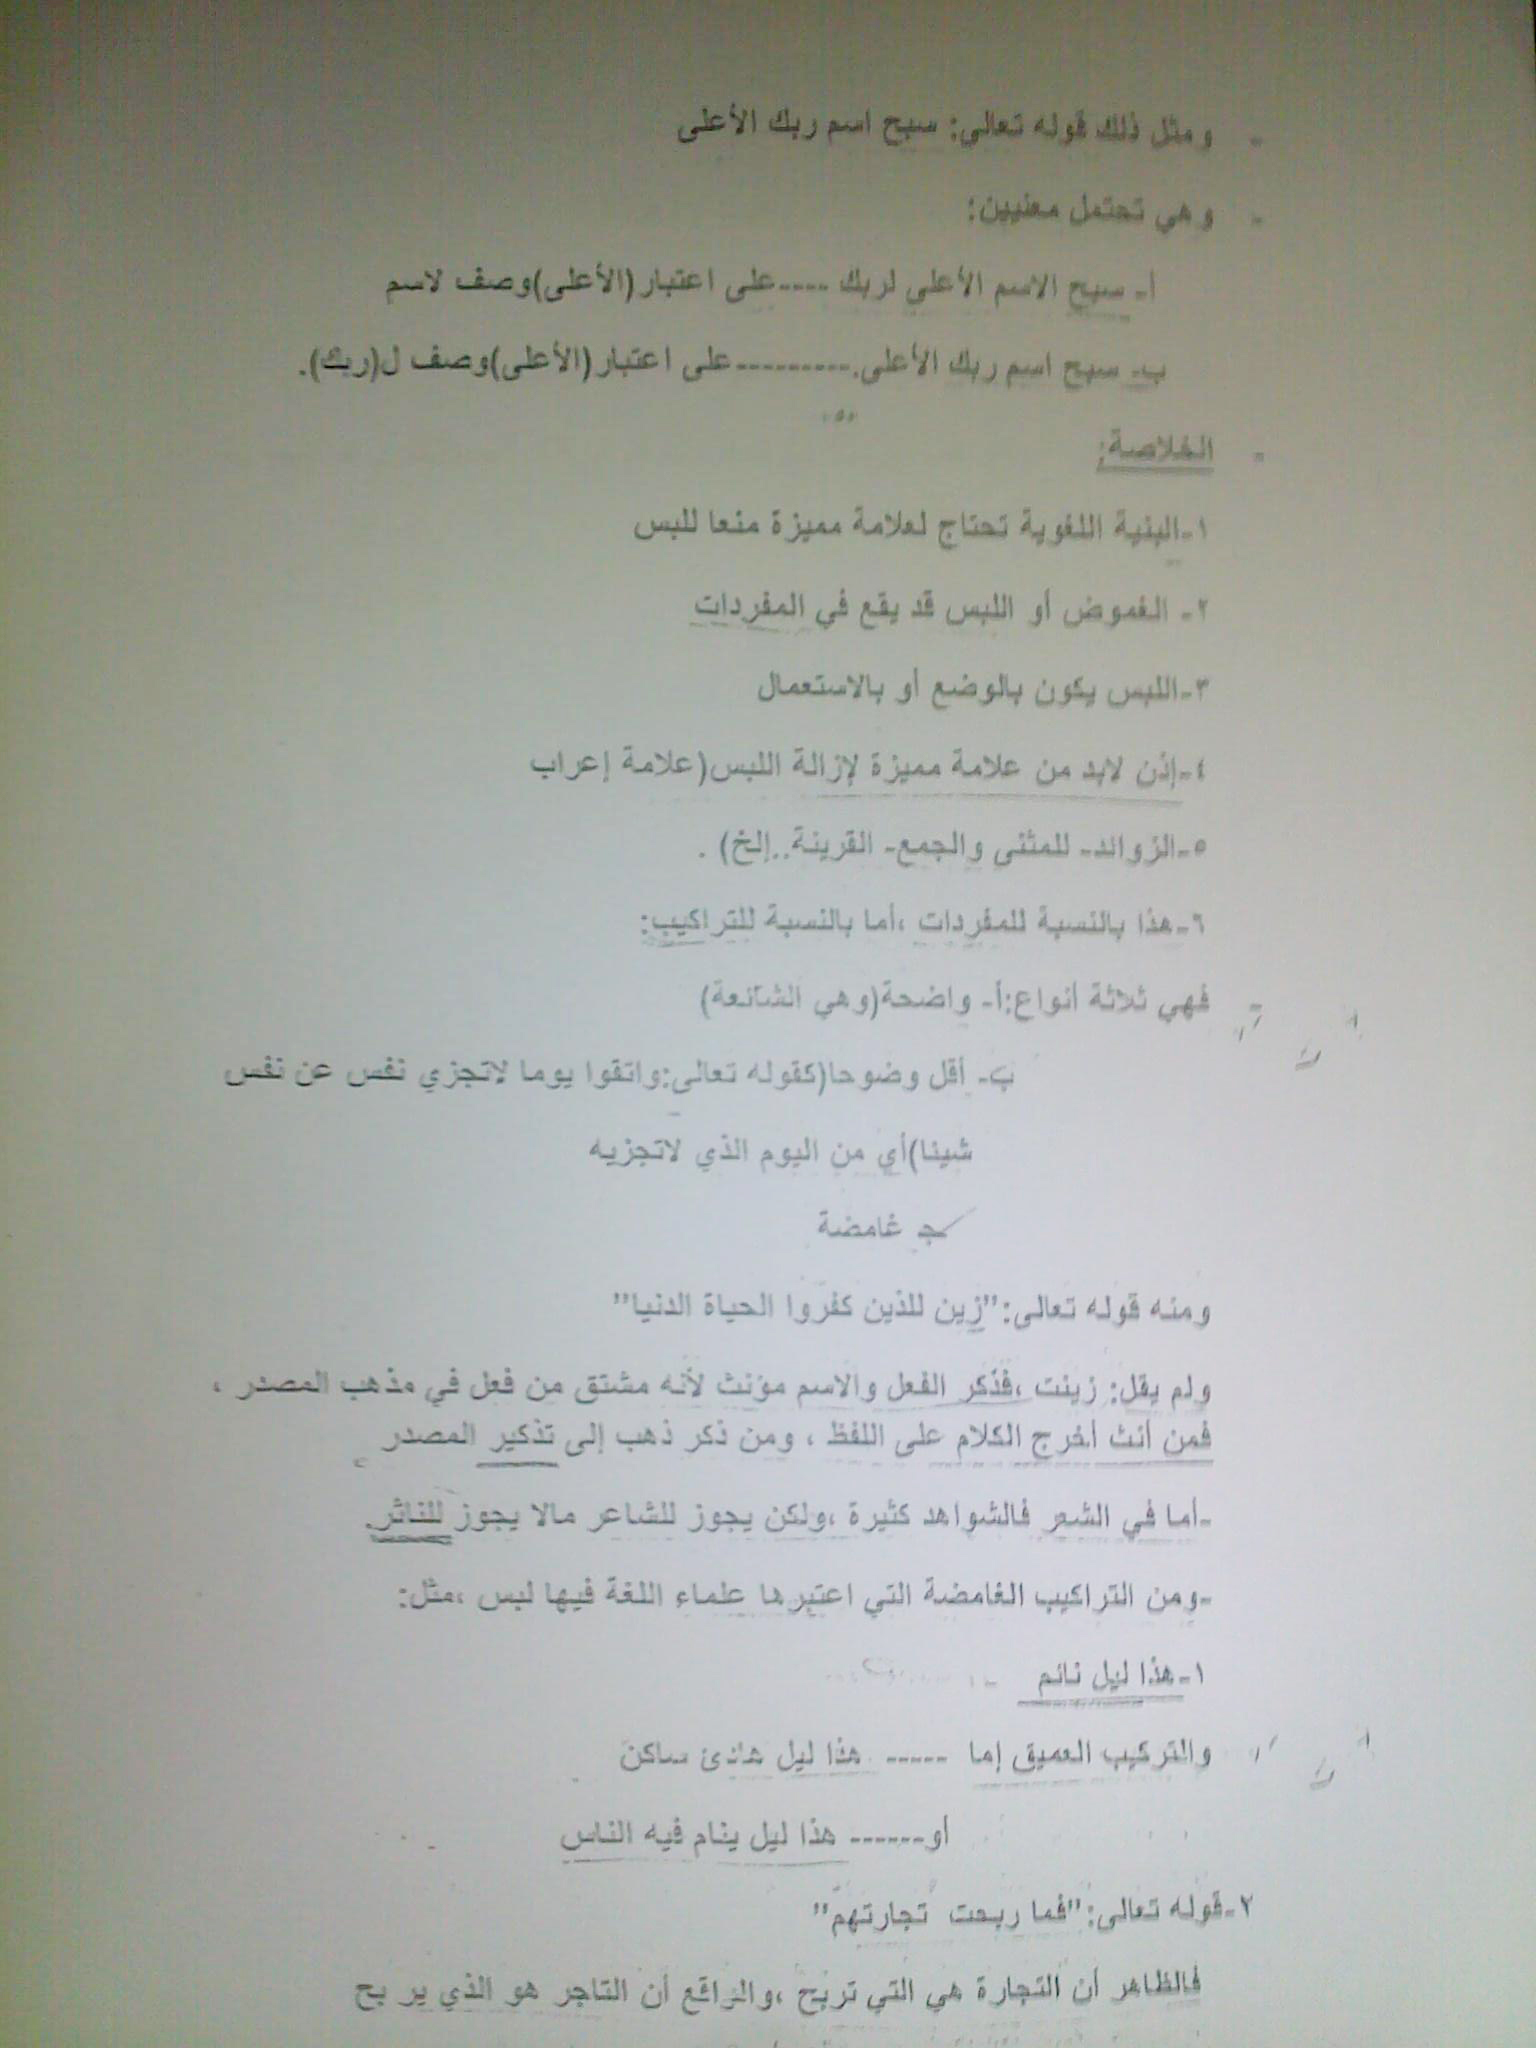 - ومثل ذلك قوله تعالى: سبح اسم ربك الأعلى
- وهي تحتمل معنيين:
أ- سبح الاسم الأعلى لربك ----على اعتبار(الأعلى)وصف لاسم
ب- سبح اسم ربك الأعلى.---------على اعتبار(الأعلى)وصف ل(ربك).
- الخلاصة:
١-البنية اللغوية تحتاج لعلامة مميزة منعا للبس
٢- الغموض أو اللبس قد يقع في المفردات
٣-اللبس يكون بالوضع أو بالاستعمال
٤-إذن لابد من علامة مميزة لإزالة اللبس(علامة إعراب
٥-الزوائد- للمثنى والجمع- القرينة..إلخ) .
٦-هذا بالنسبة للمفردات ،أما بالنسبة للتراكيب:
- فهي ثلاثة أنواع:أ- واضحة(وهي الشائعة)
ب- أقل وضوحا(كقوله تعالى:واتقوا يوما لاتجزي نفس عن نفس
شيئا)أي من اليوم الذي لاتجزيه
ج غامضة
ومنه قوله تعالى:"زين للذين كفروا الحياة الدنيا"
ولم يقل: زينت ،فذكر الفعل والاسم مؤنث لأنه مشتق من فعل في مذهب المصدر ،
فمن أنث أخرج الكلام على اللفظ ، ومن ذكر ذهب إلى تذكير المصدر
-أما في الشعر فالشواهد كثيرة ،ولكن يجوز للشاعر مالا يجوز للناثر.
-ومن التراكيب الغامضة التي اعتبرها علماء اللغة فيها لبس ،مثل:
١-هذا ليل نائم
والتركيب العميق إما ----- هذا ليل هادئ ساكن
أو------ هذا ليل ينام فيه الناس
٢-قوله تعالى:"فما ربحت تجارتهم"
فالظاهر أن التجارة هي التي تربح ،والواقع أن التاجر هو الذي ير بح